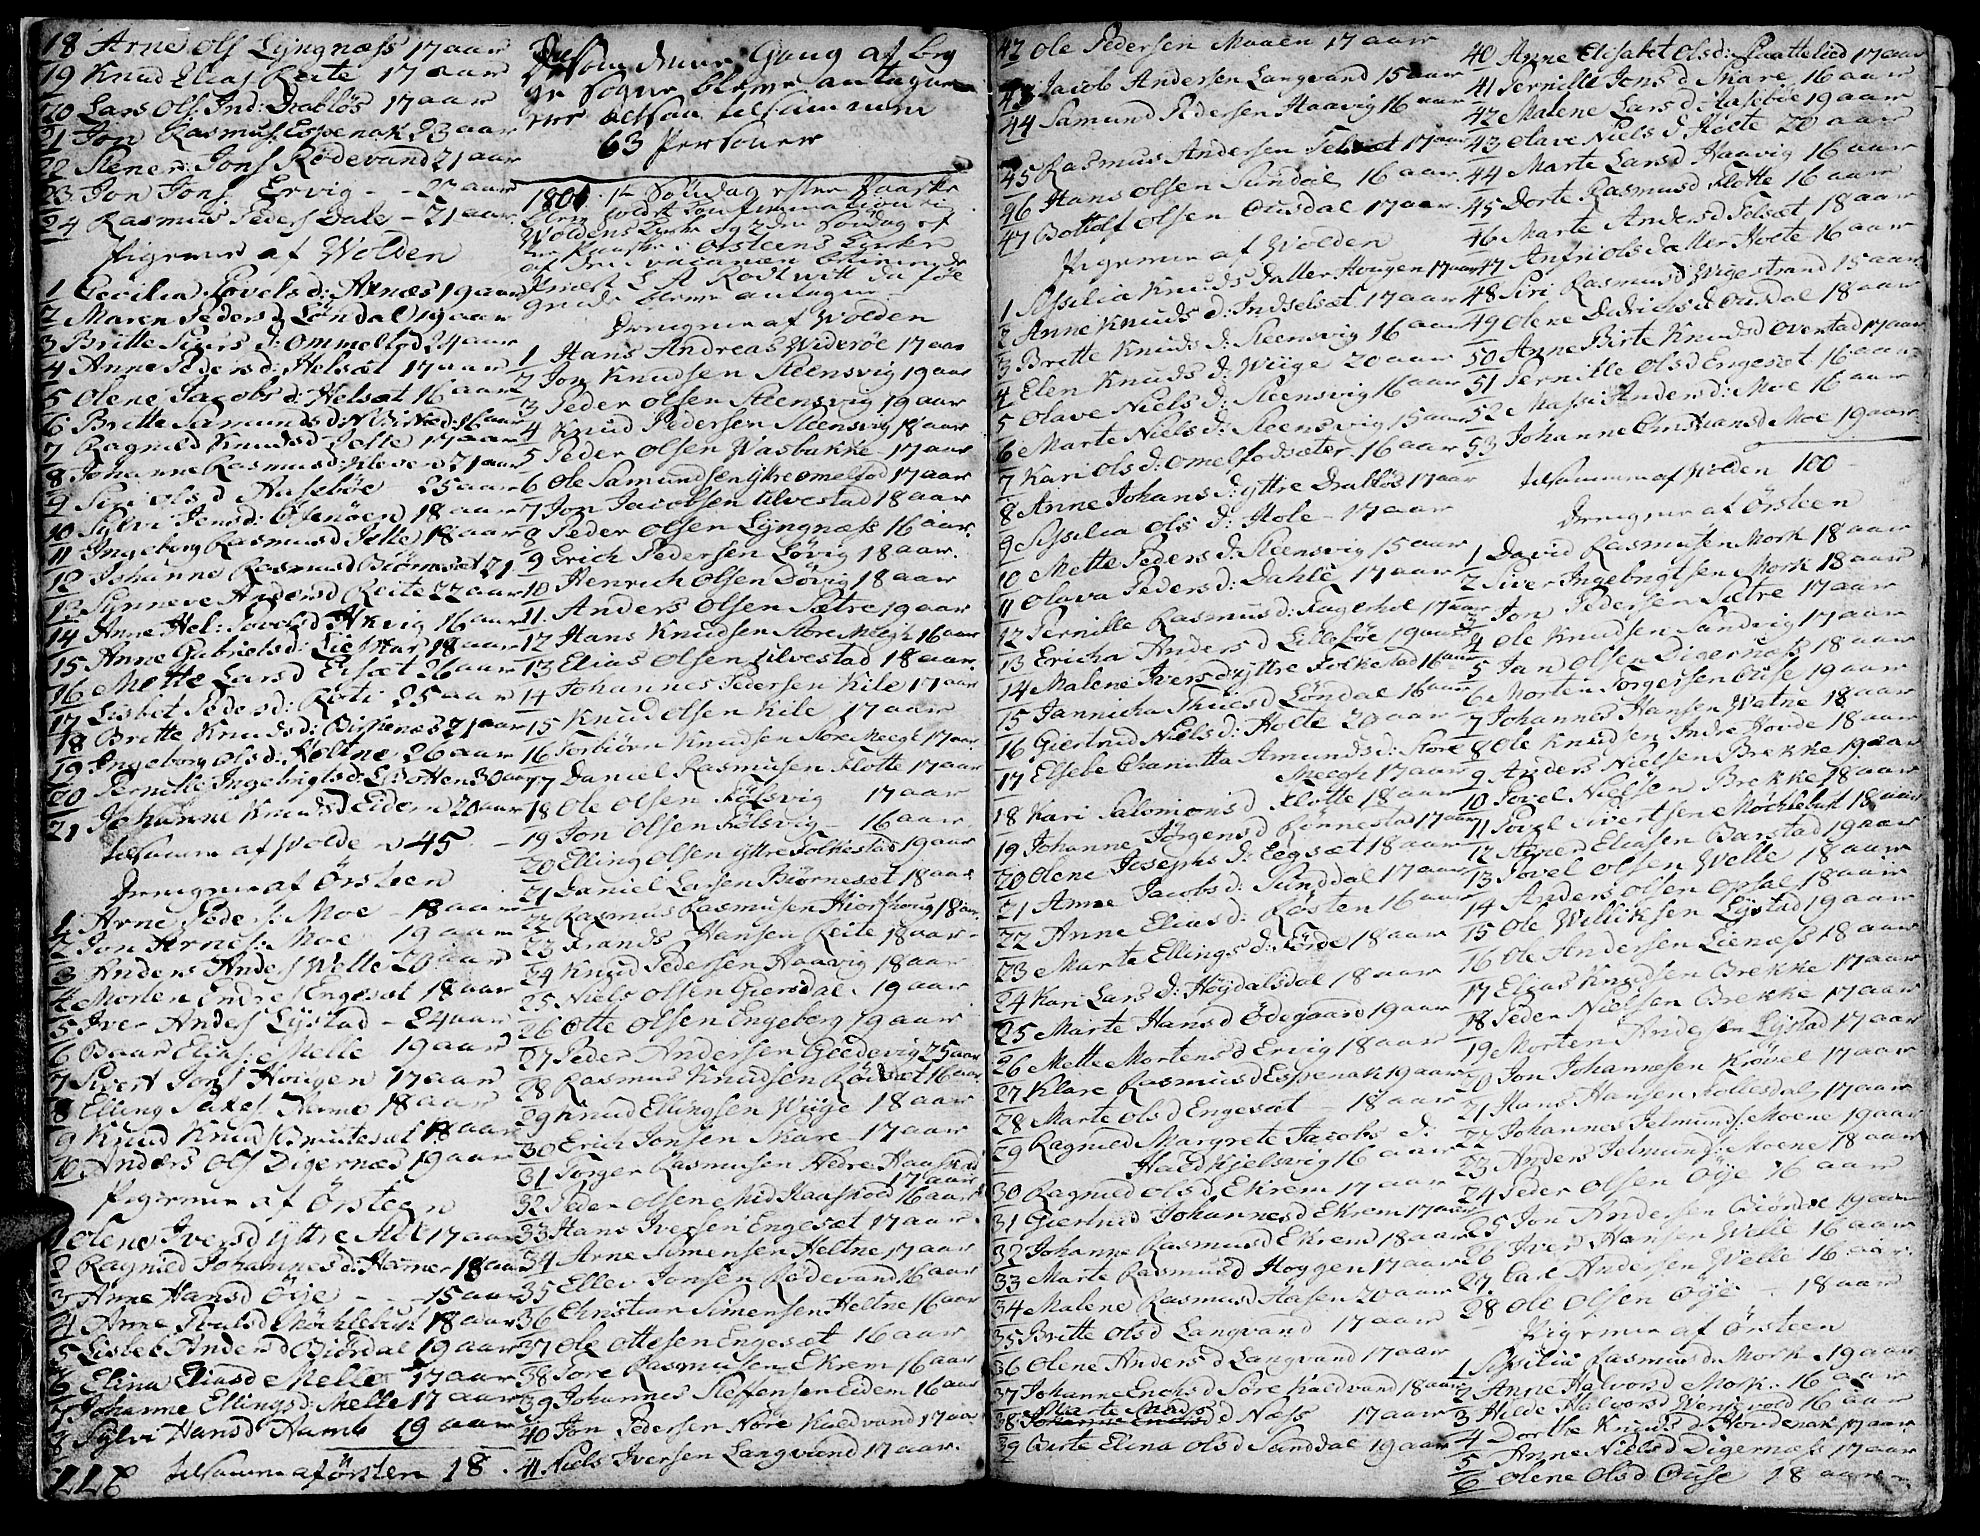 18 Arne Ols Lÿngnæss 17 aar
19 Knud Elias Reite 17 aar
20 Lars Ols Ind: Drabløs 17 aar
21 Jon Rasmus Espenak 23 aar
22 Stener Jons Rødevand 21 aar
23 Jon Jons Ervig - -
24 Rasmus Peders Dale - 21 aar
Pigerne af Wolden
1 Cecilia Povels d: Aknæs 19 aar
2 Maren Peders d Løndal 19 aar
3 Britte Siurs d: Ommelfod 24 aar
4 Anne Peders d: Helsæt 17 aar
5 Olene Jacobs d: Helsæt 16 aar
6 Britte Samunds d: 16 aar
7 Ragnild Knuds d 17 aar
8 Johanne Rasmus d: Kleven 21 aar
9 Siri Ols d Aasebøe 25 aar
10 Sylvi Jens d: Osenøen 18 aar
11 Ingeborg Rasmus d 18 aar
12 Johanne Rasmus d Biørneset 21
13 Synneve Anders d Reite 22 aar
14 Anne Hel: Povels d Akvig 16 aar
15 Anne Gabriels d: 18 aar
16 Mette Lars d Eisæt 26 aar
17 Lisbet Peders d: 25 aar
18 Britte Knuds d: 21 aar
19 Ingeborg Ols d: Heltne 26 aar
20 Pernille Ingebrigts d: 30 aar
21 Johanne Knuds d Eidem 20 aar
tilsamme af Wolden 45
Drengene af Ørsteen
1 Arne Peders: Moe - 18 aar
2 Jon Arnes: Moe 19 aar
3 Anders Anders Welle 20 aar
4 Morten Endres Engeset 18 aar
5 Iver Anders Lÿstad - 24 aar
6 Baar Elias: Melle 19 aar
7 Sivert Jons Hougen 17 aar
8 Elling 18 aar
9 Knud Knuds 18 aar
10 Anders Ols Digernæs 19 aar
Pigerne af Ørsteen
1 Olene Ivers d ÿttre 17 aar
2 Ragnild Johannes d: Hamer 18 aar
3 Anne Hans d Øÿe - - 15 aar
4 Anne Pouls d Møchlebust 18 aar
5 Lisbet Anders d Biørdal 19 aar
6 Elina Elias d Melle 17 aar
7 Johanne Ellings d: Melle 17 aar
8 Sylvi Hans d 19 aar
tilsamme af Ørsten 18
Disse denne Gang af begge Sogne
63 Personer
1801. 1te Søndag efter Paaske
blev holdt Confirmation i
Woldens Kirke og 2den Søndag ef
ter Paaske i Ørsteens Kirke
Drengene af Wolden
1 Hans Andreas Widerøe 17 aar
2 Jon Knudsen Steensvig 19 aar
3 Peder Olsen Steensvig 19 aar
4 Knud Pedersen Steensvig 18 aar
5 Peder Olsen Wasbakke 17 aar
6 Ole Samundsen ÿttre Omelfod 17 aar
7 Jon Jacobsen Ulvestad 18 aar
8 Peder Olsen Lÿngnæss 16 aar
9 Erich Pedersen Løvig 18 aar
10 Henrich Olsen Døvig 18 aar
11 Anders Olsen Sætre 19 aar
12 Hans Knudsen Store Meegh 16 aar
13 Elias Olsen Ulvestad 18 aar
14 Johannes Pedersen Kile 17 aar
15 Knud Olsen Kile 17 aar
16 Torbiørn Knudsen Store Meegh 17 aar
17 Daniel Rasmusen Flotte 17 aar
18 Ole Olsen Følsvig 17 aar
19 Jon Olsen Følsvig - 16 aar
20 Elling Olsen ÿttre Folkestad 19 aar
21 Daniel Larsen Biørneset 18 aar
22 Rasmus Rasmusen Hiorthoug 18 aar
23 Frands Hansen Reite 18 aar
24 Knud Pedersen Haavig 18 aar
25 Niels Olsen Giersdal 19 aar
26 Otte Olsen Engeborg 19 aar
27 Peder Andersen Geedevig 25 aar
28 Rasmus Knudsen Rødsæt 16 aar
29 Knud Ellingsen Wiige 18 aar
30 Erich Jonsen Skare 17 aar
31 Torger Rasmusen Nedre Haaskod
17 aar
32 Peder Olsen Mid Haaskod 16 aar
33 Hans Iversen Engeset 17 aar
34 Arne Simensen Heltne 17 aar
35 Ellev Jonsen Rødevand 16 aar
36 Christian Simensen Heltne 16 aar
37 Ole Ottesen Engeset 16 aar
38 Tore Rasmusen Ekrem 16 aar
39 Johannes Steffensen Eidem 16 aar
40 Jon Pedersen Nore Kaldvand 17 aar
41 Niels Iversen Langvand 17 aar
42 Ole Pedersen Moaen 17 aar
43 Jacob Andersen Langvand 15 aar
44 Samund Pedersen Haavig 16 aar
45 Rasmus Andersen 17 aar
46 Hans Olsen Sundal 16 aar
47 Bottolf Olsen Ousdal 17 aar
Pigerne af Wolden
1 Sissilia Knuds Datter Hougen 17 aar
2 Anne Knuds d: Indselset 17 aar
3 Brette Knuds d: Steensvig 16 aar
4 Elen Knuds d: Wiige 20 aar
5 Olave Niels d: Steensvig 16 aar
6 Marte Niels d: Steensvig 15 aar
7 Kari Ols d: Omelfodsæter 16 aar
8 Anne Johans d: ÿttre Drabløs 17 aar
9 Sissilia Ols d: Hole - 17 aar
10 Mette Peders d: Steensvig 15 aar
11 Olava Peders d: Dahle 17 aar
12 Pernille Rasmus d: Fagerhol 17 aar
13 Ericha Anders d Lilleføe 19 aar
14 Malene Ivers d ÿttre Folkestad 16 aar
15 Jannicha Thues d Løndal 16 aar
16 Giertrud Niels d: Holte 20 aar
17 Elsebe Chanutta Amunds d: Store
Meegh 17 aar
18 Kari Salomons d Flotte 18 aar
19 Johanne Jørgens d Rønnestad 17 aar
20 Olene Josephs d: Eegsæt 18 aar
21 Anne Jacobs d: Sunddal 17 aar
22 Anne Elias d: Røsten 16 aar
23 Marte Ellings d: Førde 18 aar
24 Kari Lars d: Høÿdalsdal 18 aar
25 Marte Hans d Ødegaard 19 aar
26 Mette Mortens d Ervig 18 aar
27 Klare Rasmus d Espenak 19 aar
28 Marte Ols d Engeset - 18 aar
29 Ragnild Margrete Jacobs d:
Hald Kjelsvig 16 aar
30 Ragnild Ols d Ekrem 17 aar
31 Giertrud Johannes d Ekrem 17 aar
32 Johanne Rasmus d Ekrem 18 aar
33 Marte Rasmus d Hoggen 17 aar
34 Malene Rasmus d Aasen 20 aar
35 Britte Ols d Langvand 17 aar
36 Olene Anders d Langvand 17 aar
37 Johanne Enoks d Søre Kaldvand 18 aar
38 d Næss 17 aar
39 Birte Elina Ols d Sunddal 19 aar
40 Anne Elisabet Ols d: 17 aar
41 Pernille Jons d Skare 16 aar
42 Malene Lars d Aasebøe 19 aar
43 Olave Niels d: Holte 20 aar
44 Marte Lars d Haavig 16 aar
45 Dorte Rasmus d Flotte 16 aar
46 Marte Anders d 18 aar
47 Ols Datter Holte 16 aar
48 Siri Rasmus d Wigestrand 15 aar
49 Olene Didrichs d Ousdal 18 aar
50 Anne Birte Knuds d Overstad 17 aar
51 Pernille Ols d Engeset 16 aar
52 Massi Anders d: Moe 16 aar
53 Johanne Christians d Moe 19 aar
tilsamme af Wolden 100
Drengene af Ørsteen
1 David Rasmusen Mork 18 aar
2 Siver Ingebrigtsen Mork 18 aar
3 Jon Pedersen Sætre 17 aar
4 Ole Knudsen Sandvig 17 aar
5 Jan Olsen Digernæss 18 aar
6 Morten Torgersen Ouse 19 aar
7 Johannes Hansen Watne 18
8 Ole Knudsen Indre Hovde 18 aar
9 Anders Nielsen Brekke 19 aar
10 Povel Nielsen Brekke 18 aar
11 Povel Sivertsen Møchlebust 18 aar
12 Eliasen Barstad 19 aar
13 Povel Olsen Welle 18 aar
14 Anders Olsen Opsal 18 aar
15 Ole Willicksen Lÿstad 19 aar
16 Ole Andersen Lienæss 18 aar
17 Elias Knudsen Brekke 17 aar
18 Peder Nielsen Brekke 17 aar
19 Morten Andersen Lÿstad 17 aar
20 Jon Johannesen Krøvel 17 aar
21 Hans Hansen 17 aar
22 Johannes Jelmunds: Moene 19 aar
23 Anders Jelmunds: Moene 18 aar
24 Peder Olsen Øÿe 16 aar
25 Jon Andersen 19 aar
26 Iver Hansen Welle 16 aar
27 Carl Andersen Welle 16 aar
28 Ole Olsen Øÿe - 18 aar
Pigerne af Ørsteen
1 Sissilia Rasmus d: Mork 19 aar
2 Anne Halvors d Mork 16 aar
3 Hilde Halvors d 16 aar
4 Dorthe Knuds d Houdenak 17 aar
5 Anne Niels d Digernæss 17 aar
6 Olene Ols d Ouse 18 aar